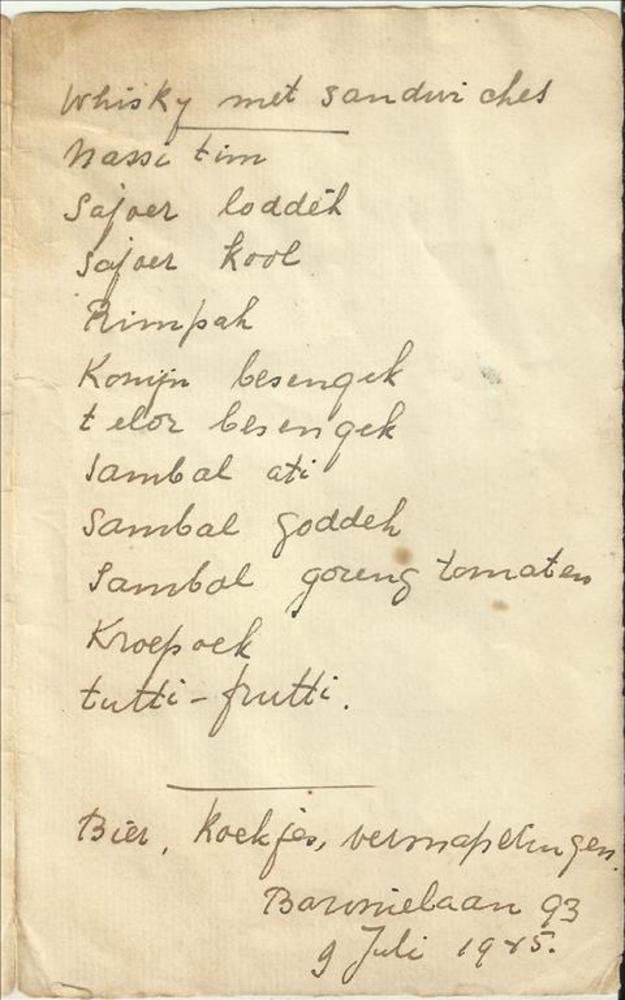 Whisky met sandwiches
Nassi tim
Sajoer loddéh
Sajoer kool
Rimpah
Konijn besengek
telor besengek
Sambal ati
Sambal goddeh
Sambal goreng tomaten
Kroepoek
tutti-frutti.
Bier, koekjes, versnaperingen.
Baronielaan 93
9 Juli 1945.